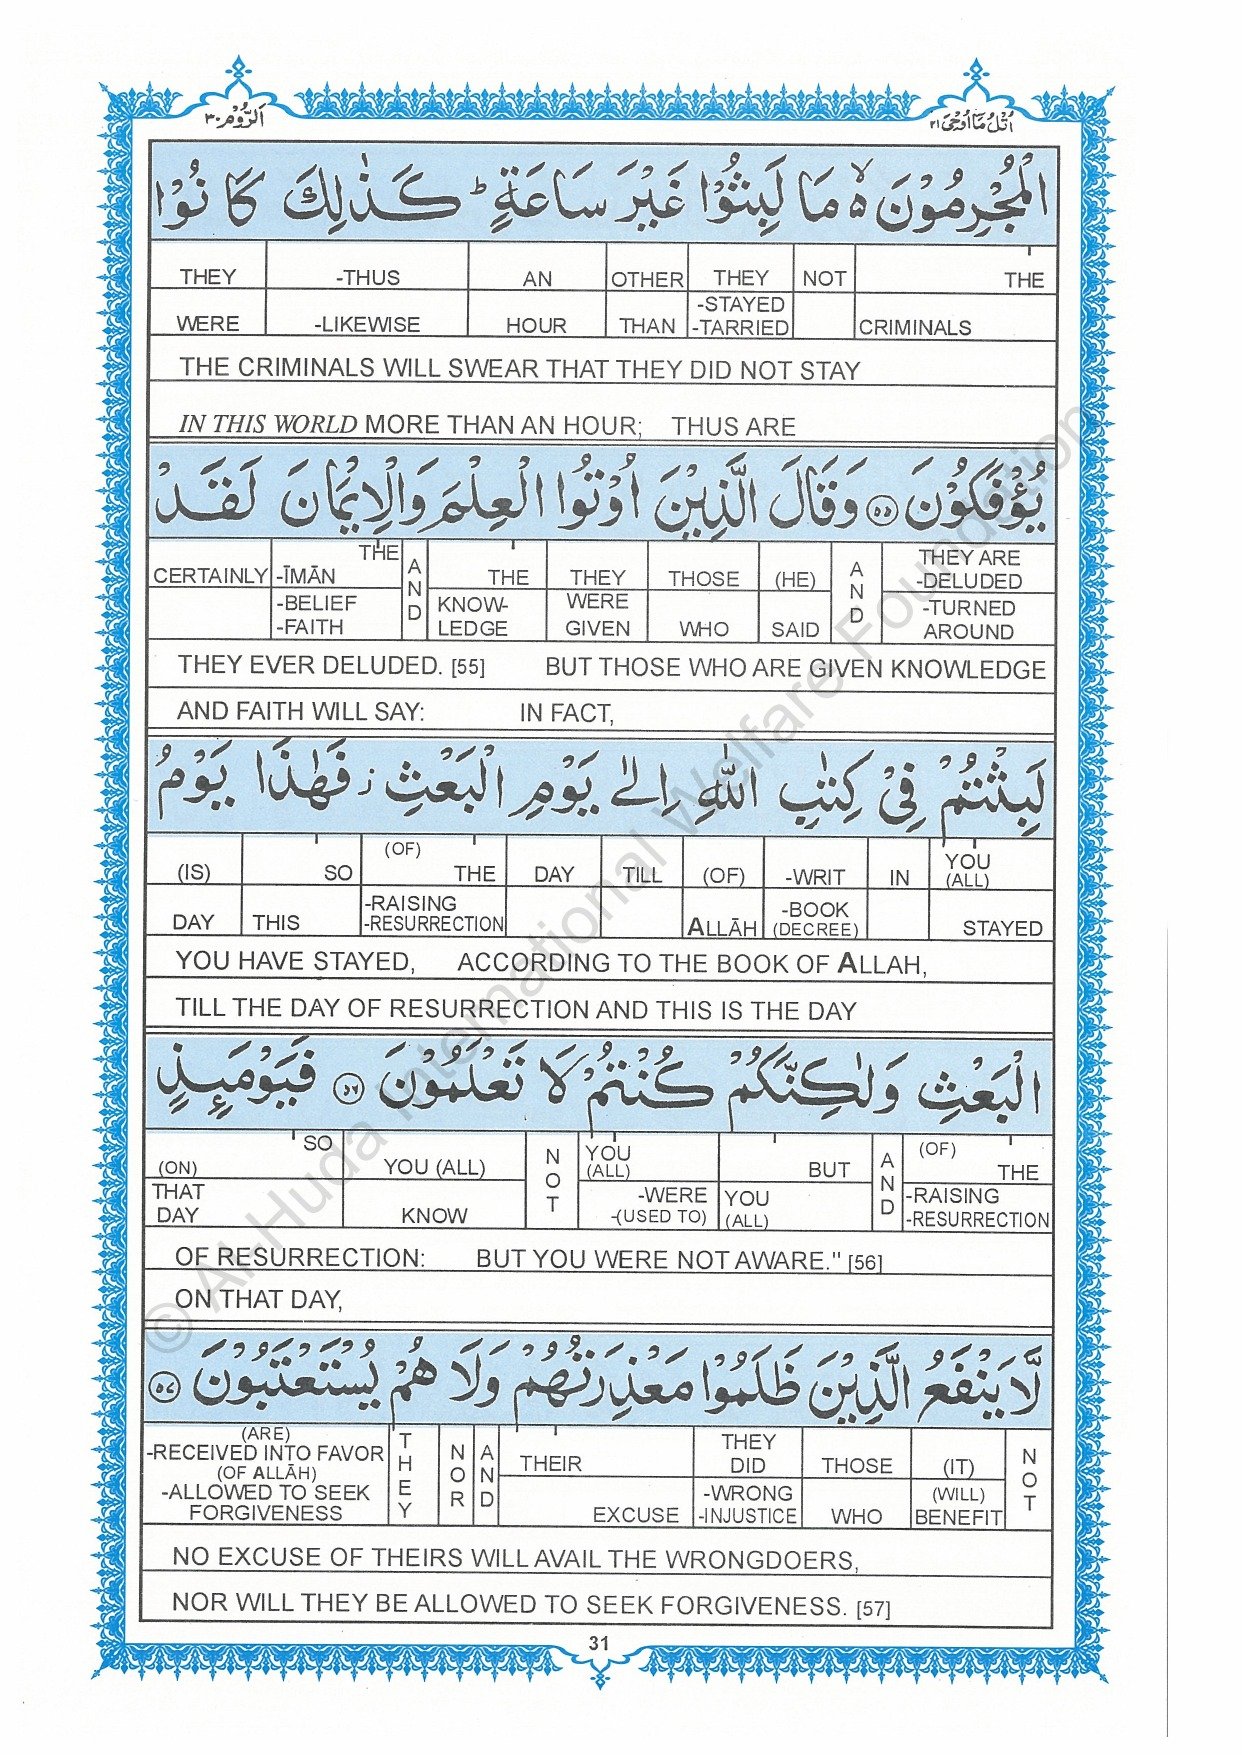 اَلرُّوْم ٣٠
اُتْلُ مَآ اُوْحِىَ ٢١
الْمُجْرِمُوْنَ ۙ٥ مَا لَبِثُوْا غَيْرَ سَاعَةٍ ؕ كَذٰلِكَ كَانُوْا
THEY -THUS AN OTHER THEY NOT THE
WERE -LIKEWISE HOUR THAN -STAYED -TARRIED CRIMINALS
THE CRIMINALS WILL SWEAR THAT THEY DID NOT STAY
IN THIS WORLD MORE THAN AN HOUR; THUS ARE
يُؤْفَكُوْنَ ٥٥ وَقَالَ الَّذِيْنَ اُوْتُوا الْعِلْمَ وَالْاِيْمَانَ لَقَدْ
CERTAINLY THE -ĪMĀN AND THE THEY THOSE (HE) AND THEY ARE -DELUDED
-BELIEF -FAITH KNOW-LEDGE WERE GIVEN WHO SAID -TURNED AROUND
THEY EVER DELUDED. [55] BUT THOSE WHO ARE GIVEN KNOWLEDGE
AND FAITH WILL SAY: IN FACT,
لَبِثْتُمْ فِىْ كِتٰبِ اللّٰهِ اِلٰى يَوْمِ الْبَعْثِ ز فَهٰذَا يَوْمُ
(IS) SO (OF) THE DAY TILL (OF) -WRIT IN YOU (ALL)
DAY THIS -RAISING -RESURRECTION ALLĀH -BOOK (DECREE) STAYED
YOU HAVE STAYED, ACCORDING TO THE BOOK OF ALLAH,
TILL THE DAY OF RESURRECTION AND THIS IS THE DAY
الْبَعْثِ وَلٰكِنَّكُمْ كُنْتُمْ لَا تَعْلَمُوْنَ ٥٦ فَيَوْمَئِذٍ
(ON) SO YOU (ALL) NOT YOU (ALL) BUT AND (OF) THE
THAT DAY KNOW -WERE -(USED TO) YOU (ALL) -RAISING -RESURRECTION
OF RESURRECTION: BUT YOU WERE NOT AWARE." [56]
ON THAT DAY,
لَّا يَنْفَعُ الَّذِيْنَ ظَلَمُوْا مَعْذِرَتُهُمْ وَلَا هُمْ يُسْتَعْتَبُوْنَ ٥٧
(ARE) -RECEIVED INTO FAVOR (OF ALLĀH) -ALLOWED TO SEEK FORGIVENESS THEY NOR AND THEIR THEY DID THOSE (IT) NOT
EXCUSE -WRONG -INJUSTICE WHO (WILL) BENEFIT
NO EXCUSE OF THEIRS WILL AVAIL THE WRONGDOERS,
NOR WILL THEY BE ALLOWED TO SEEK FORGIVENESS. [57]
31
© Al-Huda International Welfare Foundation